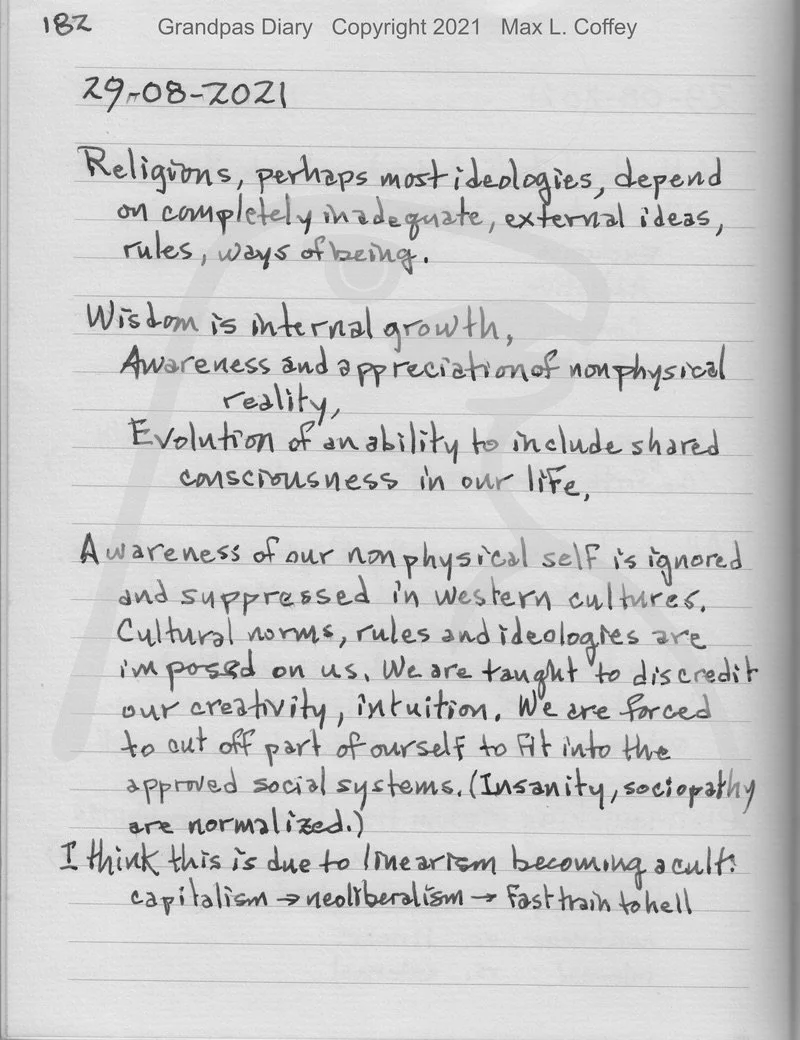 182
Grandpas Diary Copyright 2021 Max L. Coffey
29-08-2021
Religions, perhaps most ideologies, depend
on completely inadequate, external ideas,
rules, ways of being.
Wisdom is internal growth,
Awareness and appreciation of nonphysical
reality,
Evolution of an ability to include shared
consciousness in our life,
Awareness of our nonphysical self is ignored
and suppressed in western cultures.
Cultural norms, rules and ideologies are
imposed on us. We are taught to discredit
our creativity, intuition. We are forced
to cut off part of ourself to fit into the
approved social systems. (Insanity, sociopathy
are normalized.)
I think this is due to linearism becoming a cult:
capitalism → neoliberalism → fast train to hell